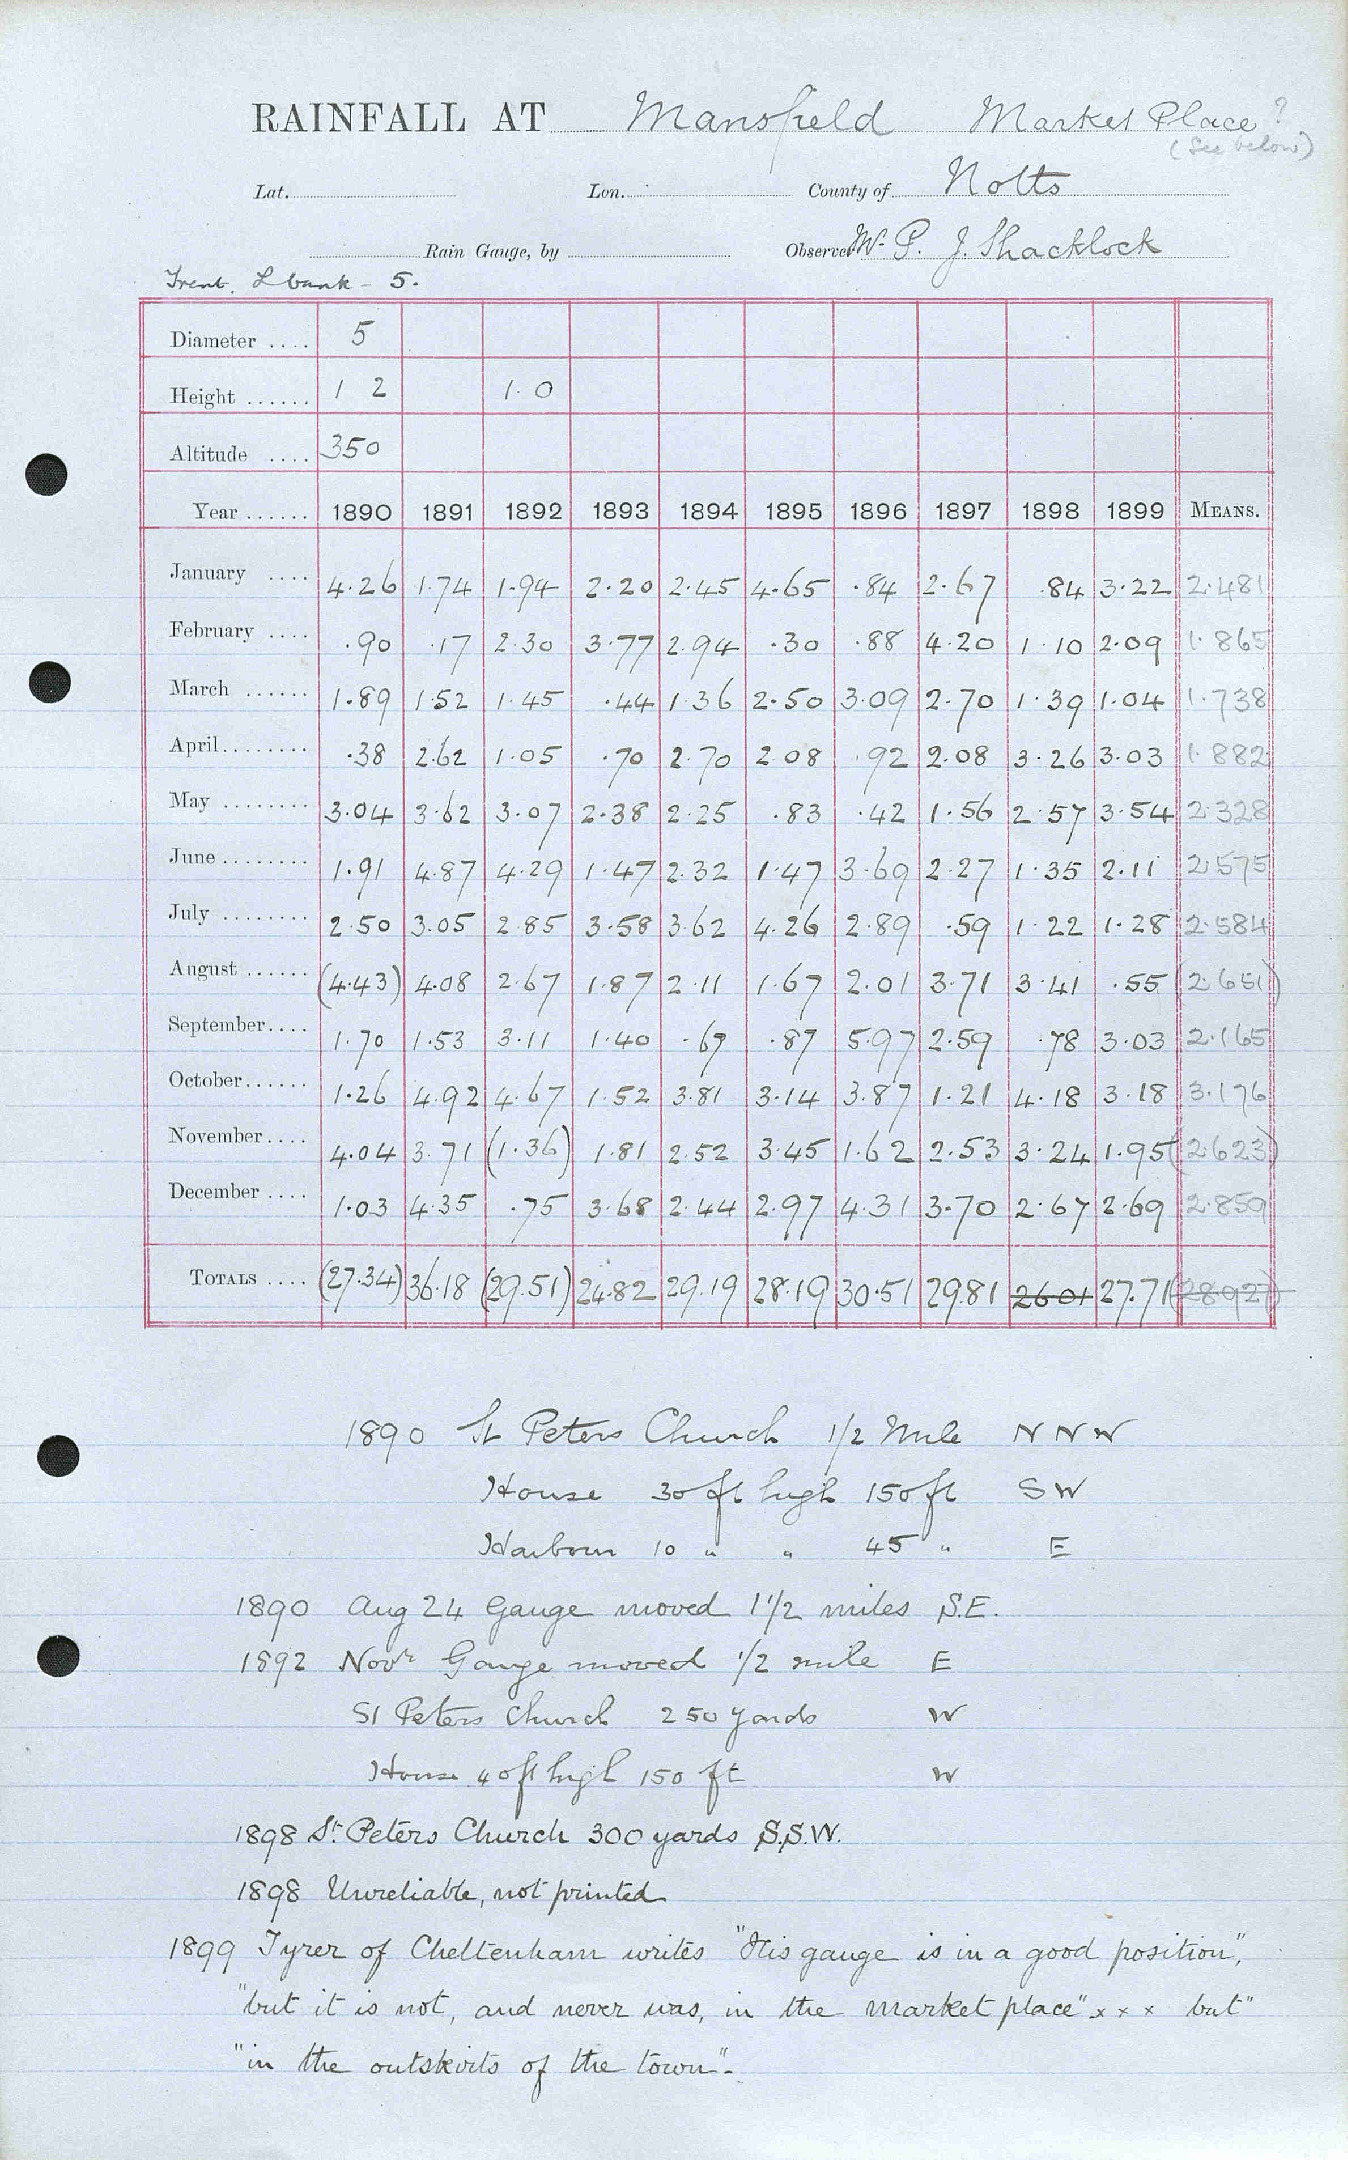 RAINFALL AT Mansfield Market Place ?
(See below)
Lat. Lon. County of Notts
Rain Gauge, by Observer W. P. J. Shacklock
Trent. L bank - 5.
Diameter .... 5
Height ...... 1 2 1.0
Altitude .... 350
Year ...... 1890 1891 1892 1893 1894 1895 1896 1897 1898 1899 MEANS.
January .... 4.26 1.74 1.94 2.20 2.45 4.65 .84 2.67 .84 3.22 2.481
February .... .90 .17 2.30 3.77 2.94 .30 .88 4.20 1.10 2.09 1.865
March ...... 1.89 1.52 1.45 .44 1.36 2.50 3.09 2.70 1.39 1.04 1.738
April........ .38 2.62 1.05 .70 2.70 2.08 .92 2.08 3.26 3.03 1.882
May ........ 3.04 3.62 3.07 2.38 2.25 .83 .42 1.56 2.57 3.54 2.328
June ........ 1.91 4.87 4.29 1.47 2.32 1.47 3.69 2.27 1.35 2.11 2.575
July ........ 2.50 3.05 2.85 3.58 3.62 4.26 2.89 .59 1.22 1.28 2.584
August ...... (4.43) 4.08 2.67 1.87 2.11 1.67 2.01 3.71 3.41 .55 (2.651)
September.... 1.70 1.53 3.11 1.40 .67 .87 5.97 2.59 .78 3.03 2.165
October...... 1.26 4.92 4.67 1.52 3.81 3.14 3.87 1.21 4.18 3.18 3.176
November.... 4.04 3.71 (1.36) 1.81 2.52 3.45 1.62 2.53 3.24 1.95 (2.623)
December .... 1.03 4.35 .75 3.68 2.44 2.97 4.31 3.70 2.67 2.69 2.859
TOTALS .... (27.34) 36.18 (29.51) 24.82 29.19 28.19 30.51 29.81 26.01 27.71 (28.927)
1890 St Peters Church 1/2 Mile N N W
House 30 ft high 150 ft S W
10 " " 45 " E
1890 Aug 24 Gauge moved 1 1/2 miles S.E.
1892 Novr Gauge moved 1/2 mile E
St Peters Church 250 yards W
House 40 ft high 150 ft W
1898 St. Peters Church 300 yards S.S.W.
1898 Unreliable, not printed
1899 Tyrer of Cheltenham writes "His gauge is in a good position",
"but it is not, and never was, in the market place" x x x but"
"in the outskirts of the town".